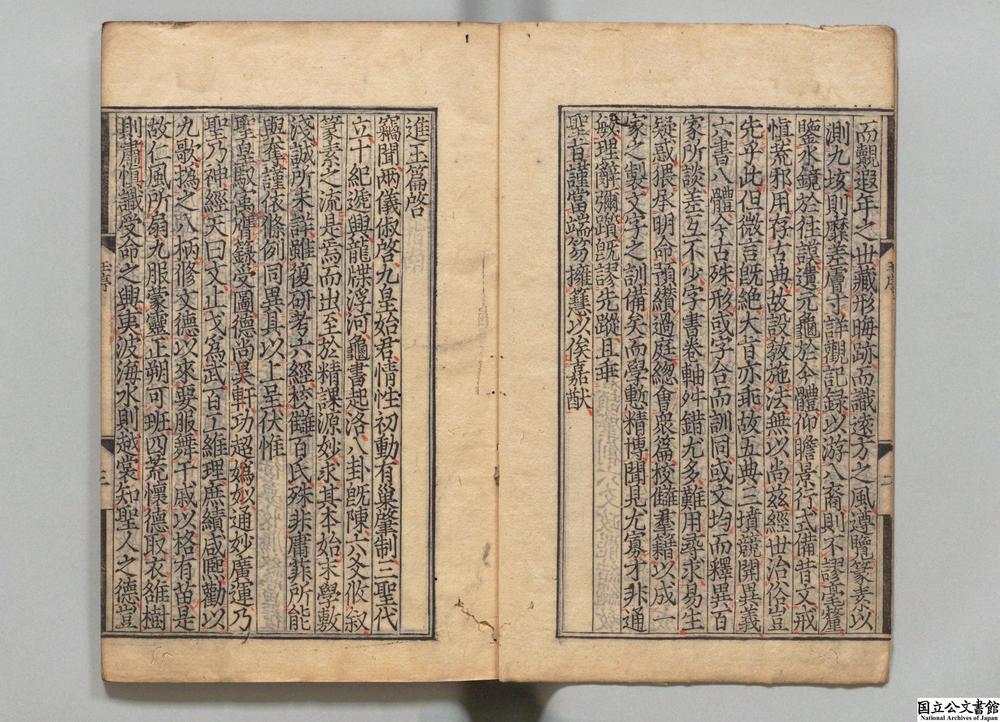 而覿遐年之世藏形晦跡而識遠方之風遵覽篆素以
測九垓則靡差膚寸詳觀記錄以游八裔則不謬毫釐
鑒水鏡於往謨遺元龜於今體仰瞻景行式備昔文戒
慎荒邪用存古典故設教施法無以尚茲經世治俗豈
先乎此但微言既絕大旨亦乖故五典三墳競開異義
六書八體今古殊形或字各而訓同或文均而釋異百
家所談差互不少字書卷軸舛錯尤多難用尋求易生
疑惑猥承明命預纘過庭總會衆篇校讎羣籍以成一
家之製文字之訓備矣而學慙精博聞見尤寡才非通
敏理辭彌躓既謬先蹤且乖
聖旨謹當端笏擁慧以俟嘉猷
進玉篇啓
竊聞兩儀俶啓九皇始君情性初動有巢肇制三聖代
立十紀遞興龍牒浮河龜書起洛八卦既陳六爻攸敘
篆素之流是焉而出至於精課源妙求其本始末學敷
淺誠所未詳雖復研考六經校讎百氏殊非庸菲所能
與奪謹依條例同異具以上呈伏惟
聖皇馭㝢膺籙受圖德尚昊軒功超嬀姒通妙廣運乃
聖乃神經天曰文止戈爲武百工維理庶績咸熙勸以
九歌撝之八柄修文德以來要服舞干戚以格有苗是
故仁風所扇九服蒙靈正朔可班四荒懷德取衣維樹
則肅慎識受命之興夷波海水則越裳知聖人之德豈
国立公文書館
National Archives of Japan